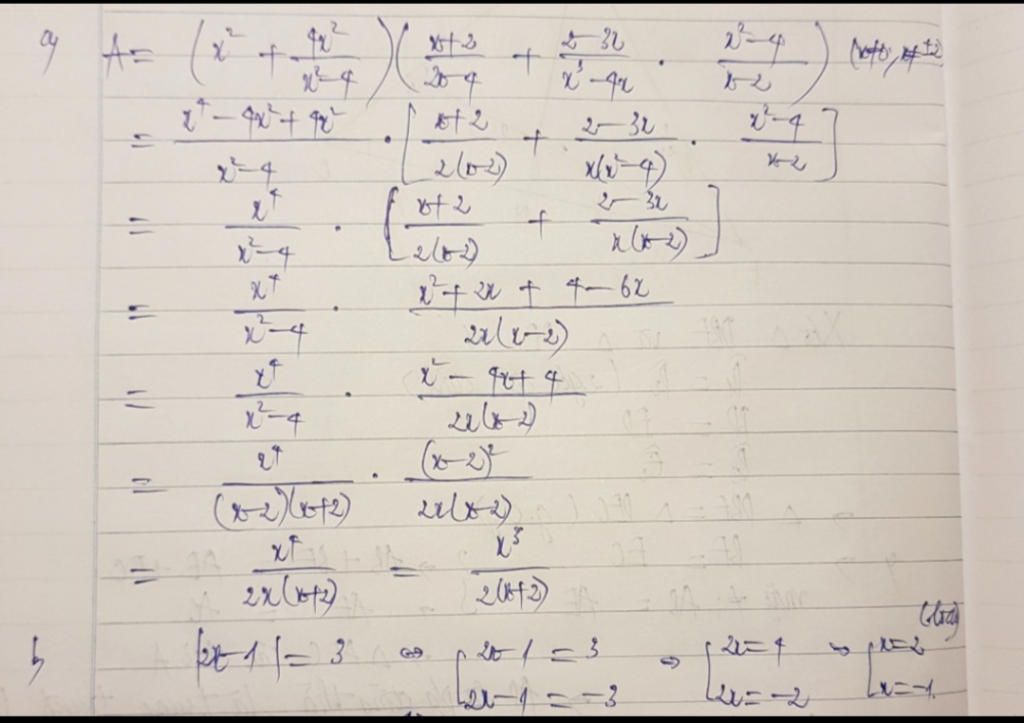 a) A = (x² + 4x²/(x²-4)) ((x+2)/(2x-4) + (2-3x)/(x³-4x) · (x²-4)/(x-2)) (x≠0, x≠±2)
= (x⁴ - 4x² + 4x²)/(x²-4) · [(x+2)/(2(x-2)) + (2-3x)/(x(x²-4)) · (x²-4)/(x-2)]
= x⁴/(x²-4) · [(x+2)/(2(x-2)) + (2-3x)/(x(x-2))]
= x⁴/(x²-4) · (x² + 2x + 4 - 6x)/(2x(x-2))
= x⁴/(x²-4) · (x² - 4x + 4)/(2x(x-2))
= x⁴/((x-2)(x+2)) · (x-2)²/(2x(x-2))
= x⁴/(2x(x+2)) = x³/(2(x+2))
b) |2x-1| = 3 ⇔ [2x-1 = 3 ; 2x-1 = -3 ⇒ [2x = 4 ; 2x = -2 ⇒ [x = 2 (loại) ; x = -1